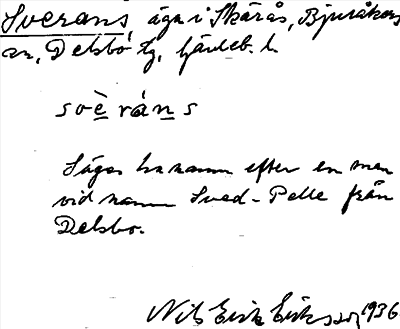 Sverans, äga i Skärås, Bjuråkers
sn, Delsbo tg, Gävleb. l.
soèráns
Säges ha namn efter en man
vid namn Sved-Pelle från
Delsbo.
Nils Erik Eriksson, 1936